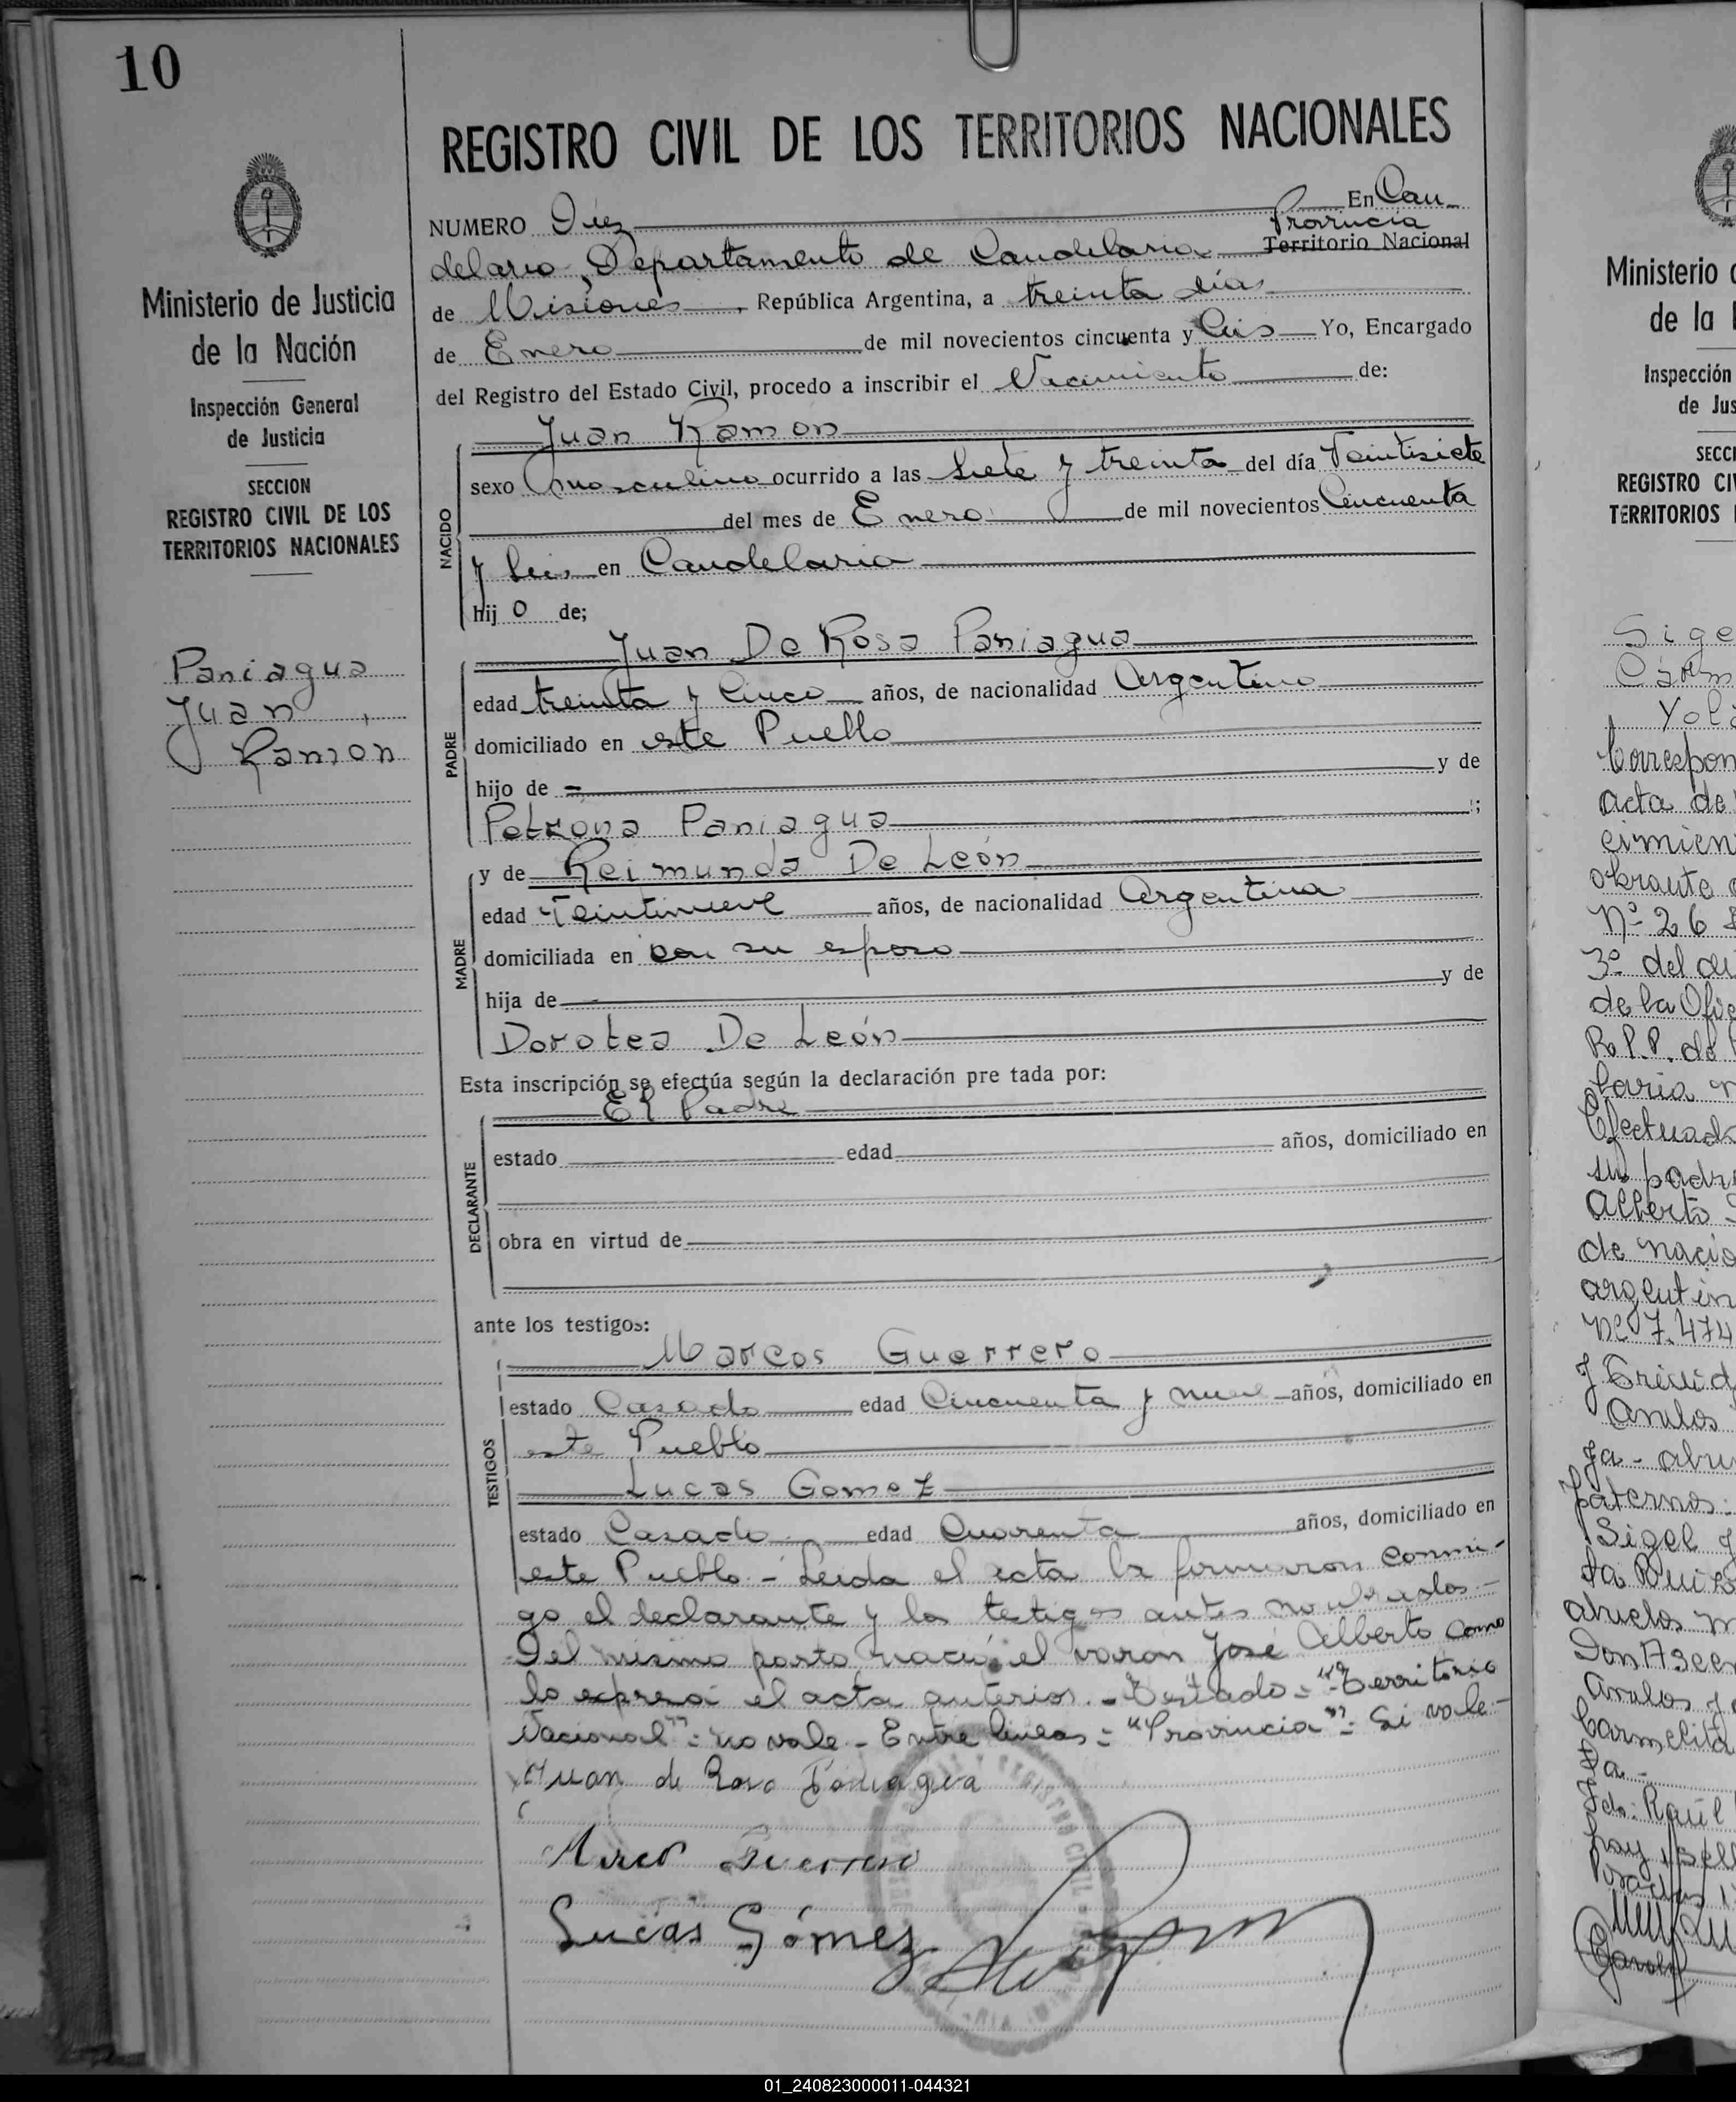 10
REGISTRO CIVIL DE LOS TERRITORIOS NACIONALES
Ministerio de Justicia
de la Nación
Inspección General
de Justicia
SECCION
REGISTRO CIVIL DE LOS
TERRITORIOS NACIONALES
Paniagua
Juan
Ramon
NUMERO Diez En Can-
Provincia
delaria, Departamento de Candelaria Territorio Nacional
de Misiones, República Argentina, a treinta días
de Enero de mil novecientos cincuenta y Seis Yo, Encargado
del Registro del Estado Civil, procedo a inscribir el Nacimiento de:
Juan Ramon
NACIDO
sexo masculino ocurrido a las Siete y treinta del día Veintisiete
del mes de Enero de mil novecientos Cincuenta
y Seis en Candelaria
hij o de;
Juan De Rosa Paniagua
PADRE
edad treinta y Cinco años, de nacionalidad Argentino
domiciliado en este Pueblo
hijo de = y de
Petrona Paniagua ;
y de Reimunda De León
MADRE
edad Veintinueve años, de nacionalidad Argentina
domiciliada en con su esposo
hija de y de
Dorotea De León
Esta inscripción se efectúa según la declaración pre tada por:
El Padre
DECLARANTE
estado edad años, domiciliado en
obra en virtud de
ante los testigos:
Marcos Guerrero
TESTIGOS
estado Casado edad Cincuenta y nueve años, domiciliado en
este Pueblo
Lucas Gomez
estado Casado edad Cuarenta años, domiciliado en
este Pueblo.- Leida el acta la firmaron conmi-
go el declarante y los testigos antes nombrados.-
Del mismo parto nació el varon José Alberto como
lo expresa el acta anterior.- Testado = "Territorio
Nacional": no vale - Entre lineas = "Provincia": Si vale-
Juan de Rosa Paniagua
Marco Guerrero
Lucas Gómez
REGISTRO CIVIL
Ministerio
de la
Inspección
de Jus
SECCI
REGISTRO CIV
TERRITORIOS
Sigel
Yola
Correspon
acta de
cimien
obrante
Nº 26
3º del
de la Ofic
R.P.P. de
laria
Efectuada
su padre
Alberto
de nacio
argentin
Nº 7.474
paternos
Sigel y
abuelos m
Don
Carmelita
Fdo: Raúl
hay
Posadas
01_240823000011-044321